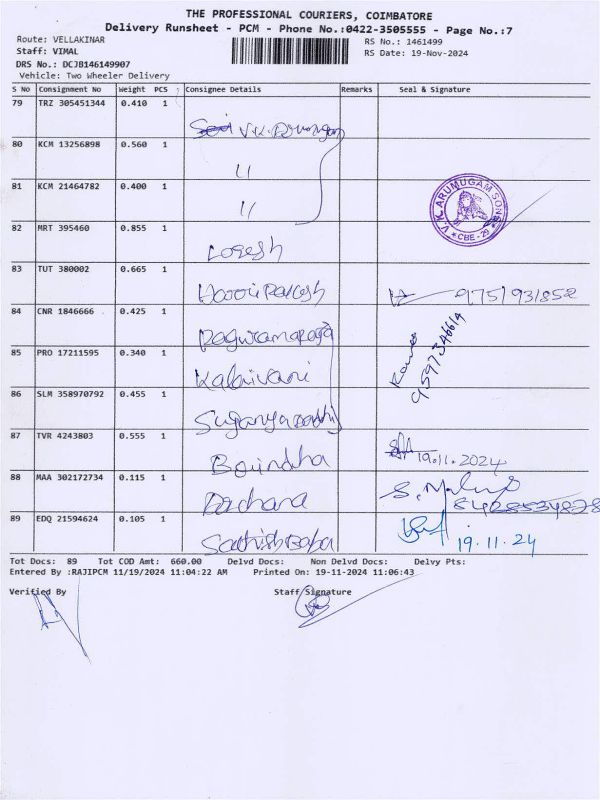 THE PROFESSIONAL COURIERS, COIMBATORE
Delivery Runsheet - PCM - Phone No.:0422-3505555 - Page No.:7
Route: VELLAKINAR
RS No.: 1461499
Staff: VIMAL
RS Date: 19-Nov-2024
DRS No.: DCJB146149907
Vehicle: Two Wheeler Delivery
S No Consignment No Weight PCS Consignee Details Remarks Seal & Signature
79 TRZ 305451344 0.410 1
80 KCM 13256898 0.560 1 "
81 KCM 21464782 0.400 1 "
V.K. ARUMUGAM SONS
* CBE-29 *
82 MRT 395460 0.855 1 Logesh
83 TUT 380002 0.665 1 9751931852
84 CNR 1846666 0.425 1
85 PRO 17211595 0.340 1 Kalaivani
86 SLM 358970792 0.455 1
87 TVR 4243803 0.555 1 19.11.2024
88 MAA 302172734 0.115 1
89 EDQ 21594624 0.105 1 Sathish Baba 19.11.24
Tot Docs: 89 Tot COD Amt: 660.00 Delvd Docs: Non Delvd Docs: Delvy Pts:
Entered By :RAJIPCM 11/19/2024 11:04:22 AM Printed On: 19-11-2024 11:06:43
Verified By Staff Signature